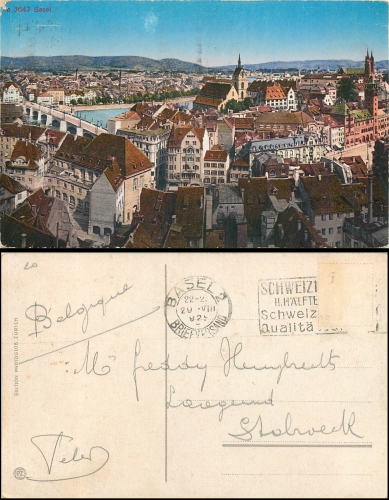 e 3047 Basel
20
Belgique
BASEL 2
22-2
20. VIII
1925
BRIEFVERSAND
SCHWEIZ
II. HÄLFTE
Schweiz
Qualitä
Mr Freddy Humbrecht
Stabroeck
EDITION PHOTOGLOB, ZÜRICH
PZ